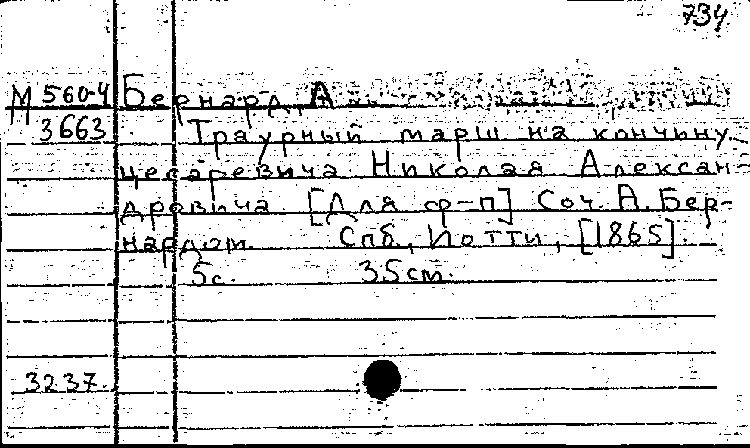 734
М 560-4 Бернард, А
3663 Траурный марш на кончину
цесаревича Николая Алексан-
дровича. [Для ф-п] Соч. А. Бер-
нардом. Спб., Иотти, [1865].
5с. 35см.
3237.